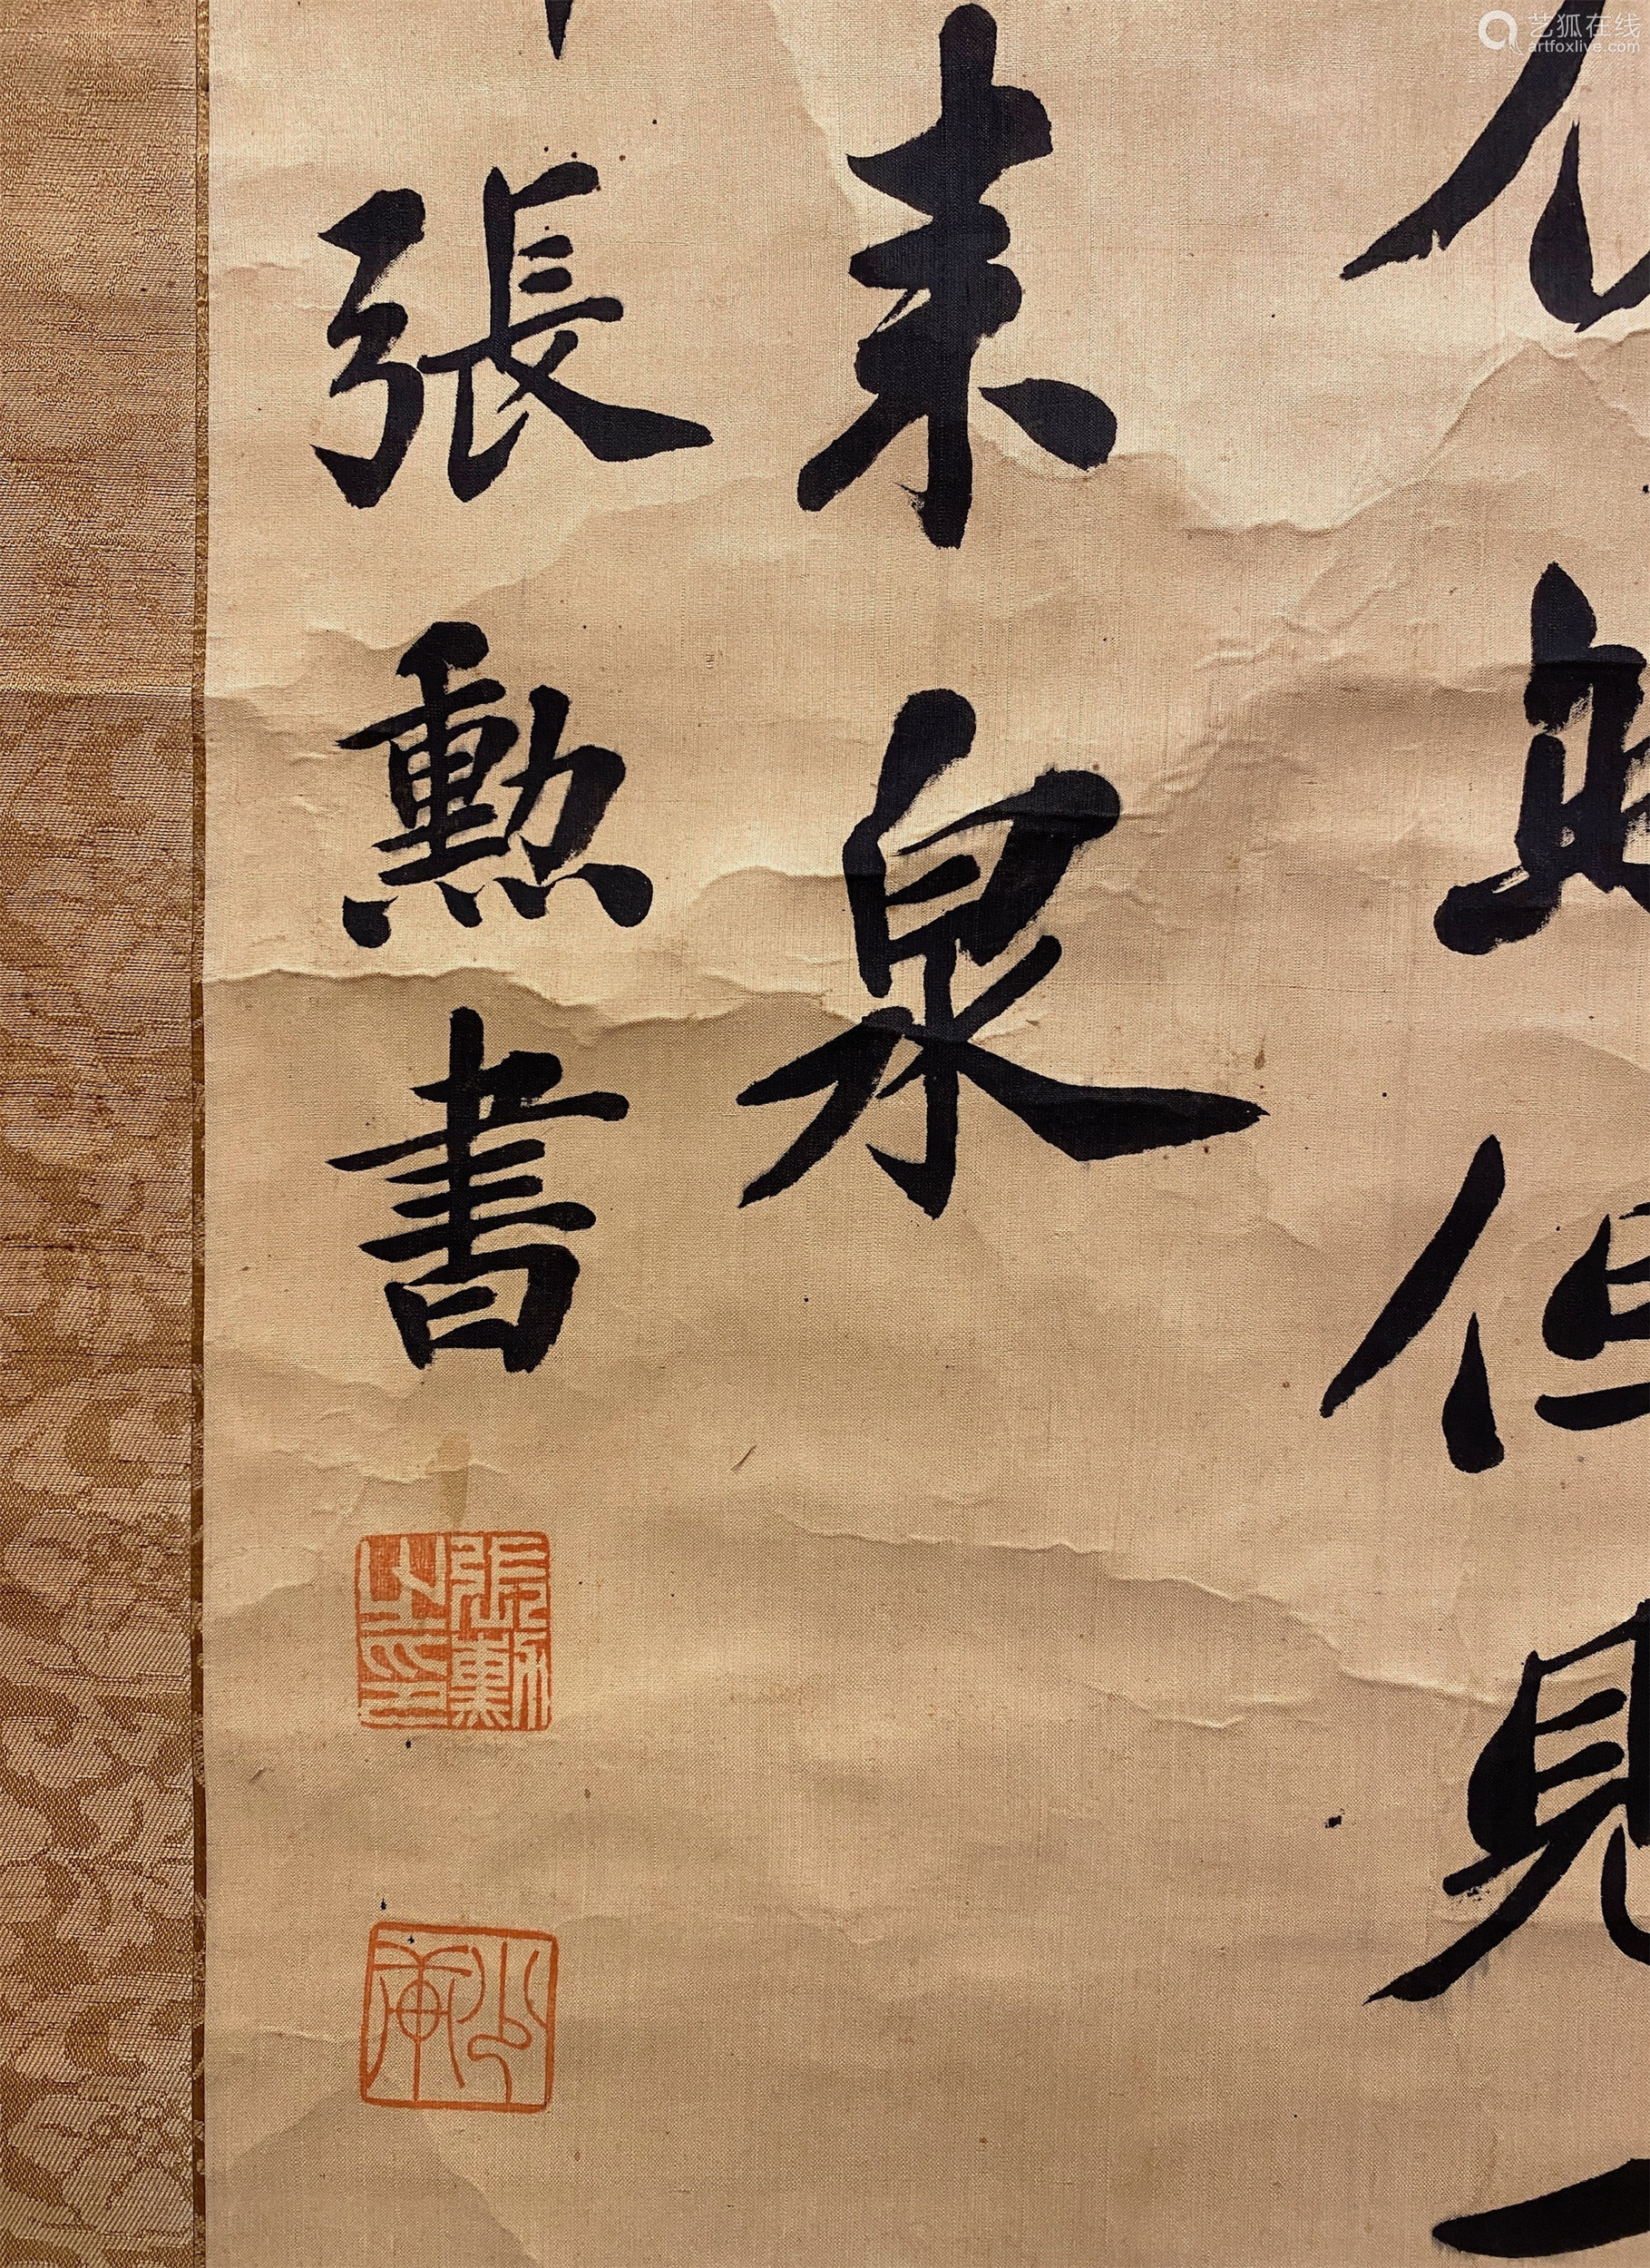 艺狐在线
artfoxlive.com
但見一
泉
張勳書
張勳之印
少軒